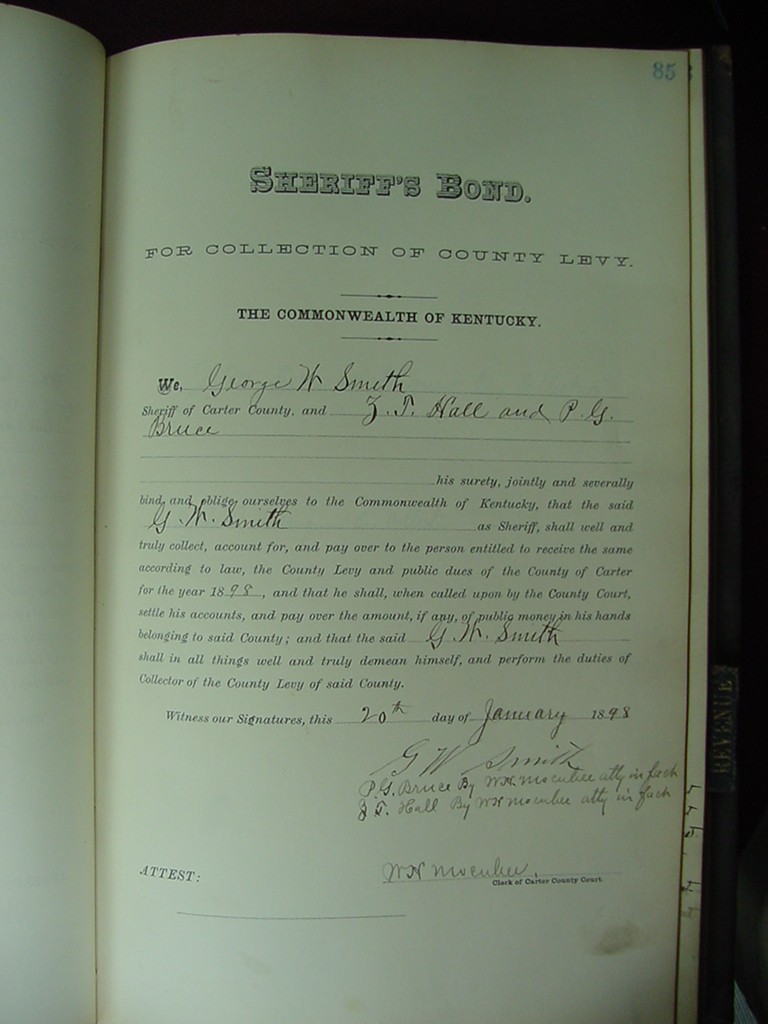 85
SHERIFF'S BOND.
FOR COLLECTION OF COUNTY LEVY.
THE COMMONWEALTH OF KENTUCKY.
We, George W Smith
Sheriff of Carter County, and Z. T. Hall and P. G.
Bruce
his surety, jointly and severally
bind and oblige ourselves to the Commonwealth of Kentucky, that the said
G. W. Smith as Sheriff, shall well and
truly collect, account for, and pay over to the person entitled to receive the same
according to law, the County Levy and public dues of the County of Carter
for the year 1898, and that he shall, when called upon by the County Court,
settle his accounts, and pay over the amount, if any, of public money in his hands
belonging to said County; and that the said G. W. Smith
shall in all things well and truly demean himself, and perform the duties of
Collector of the County Levy of said County.
Witness our Signatures, this 20th day of January 1898
G W Smith
P. G. Bruce By WH Mocabee atty in fach
Z T. Hall By WH Mocabee atty in fach
ATTEST: WH Mocabee,
Clerk of Carter County Court.
REVENUE